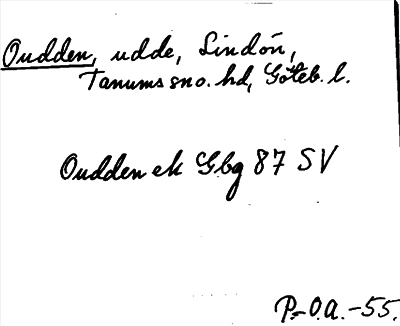 Oudden, udde, Lindön,
Tanums sno. hd, Göteb. l.
Oudden ek Gbg 87 SV
P.-O.A. -55.